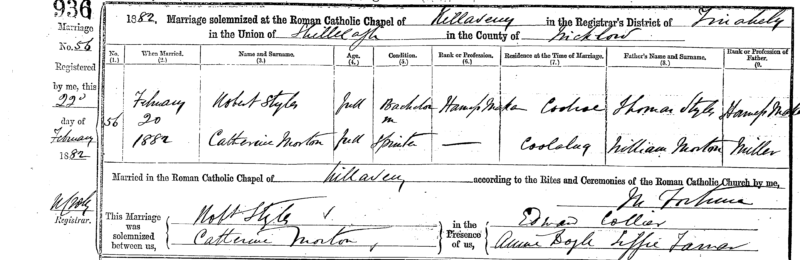 936
1882. Marriage solemnized at the Roman Catholic Chapel of Killaveny in the Registrar's District of Tinahely
in the Union of Shillelagh in the County of Wicklow
Marriage
No. 56
Registered
by me, this
22d
day of
February
1882
Registrar.
No. (1.) When Married. (2.) Name and Surname. (3.) Age. (4.) Condition. (5.) Rank or Profession. (6.) Residence at the Time of Marriage. (7.) Father's Name and Surname. (8.) Rank or Profession of Father. (9.)
56 February 20 1882
Robert Styles full Bachelor Harness Maker Thomas Styles Harness Maker
Catherine Morton full Spinster — Coolalug William Morton Miller
Married in the Roman Catholic Chapel of Killaveny according to the Rites and Ceremonies of the Roman Catholic Church by me,
M Fortune
This Marriage was solemnized between us,
Robt Styles
Catherine Morton
in the Presence of us,
Edward Collier
Annie Doyle